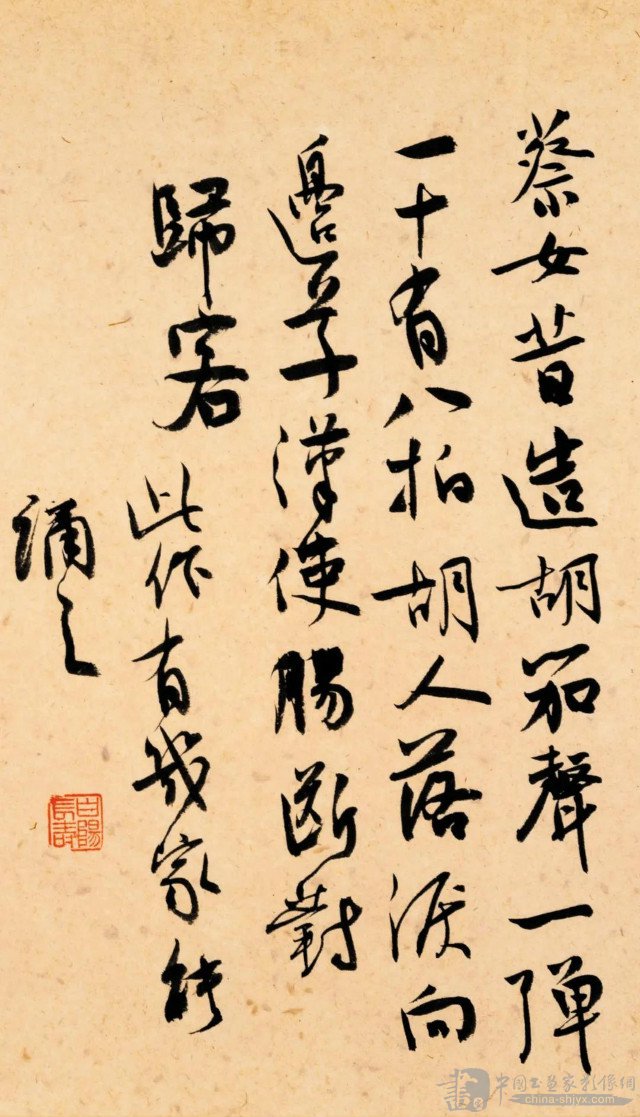 蔡女昔造胡笳聲一彈
一十有八拍胡人落淚向
邊草漢使腸斷對
歸客此作有幾家能
誦之
白陽
中國书画家影像網
china-shjyx.com